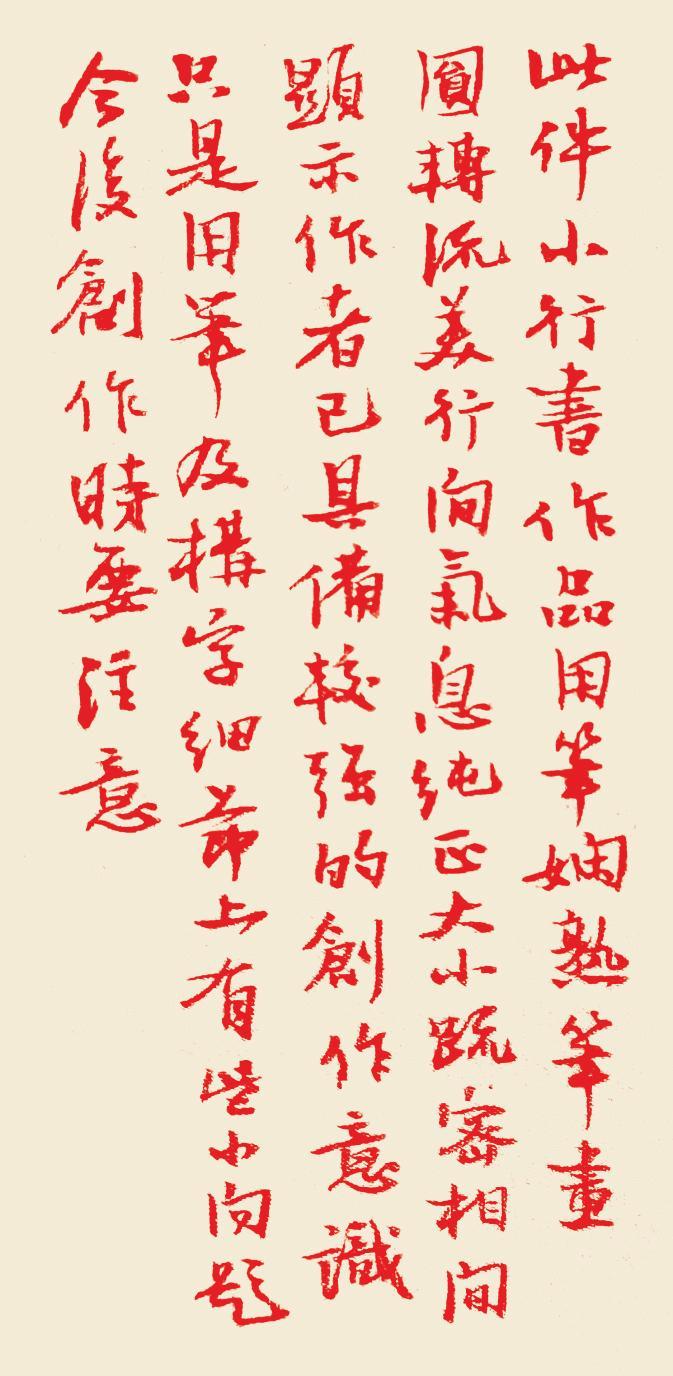 此件小行書作品用筆嫻熟筆畫
圓轉流美行間氣息純正大小疏密相間
顯示作者已具備較強的創作意識
只是用筆及構字細節上有些小問題
今後創作時要注意